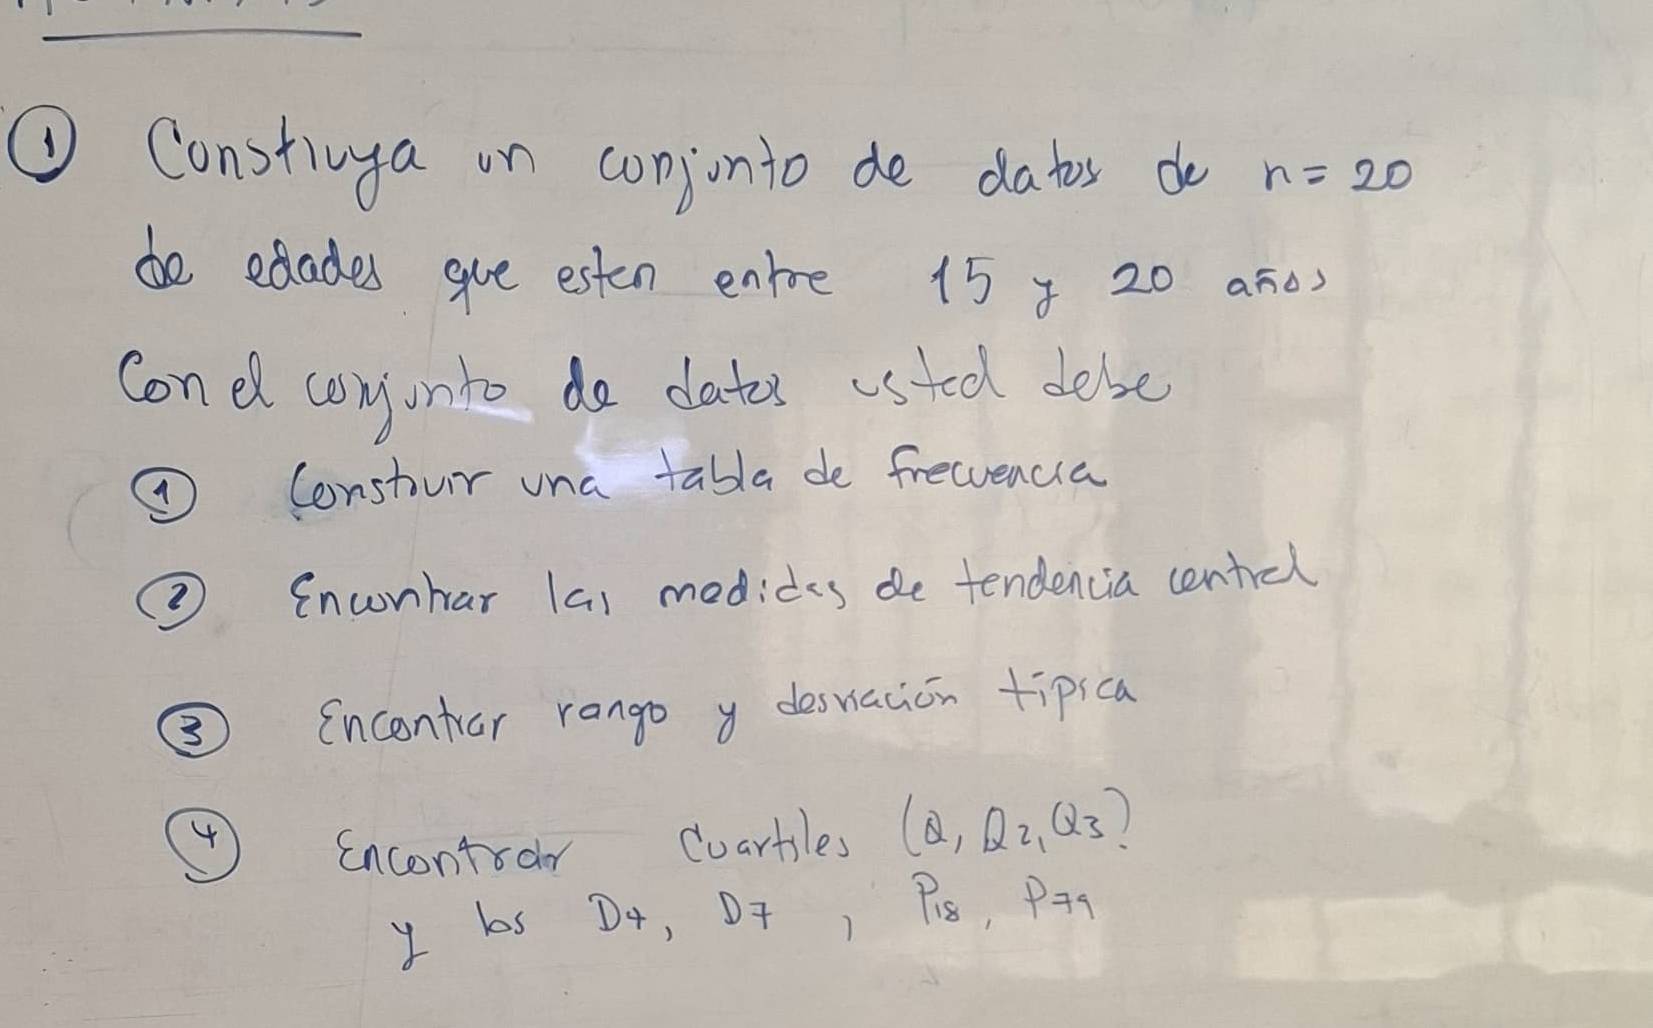 ① Construya un conjunto de datos de n = 20
de edades que esten entre 15 y 20 años
Con el conjunto de datos usted debe
① Construir una tabla de frecuencia
② Encontrar las medidas de tendencia central
③ Encontrar rango y desviación típica
④ Encontrar Cuartiles (Q, Q2, Q3)
y los D4, D7, P18, P79